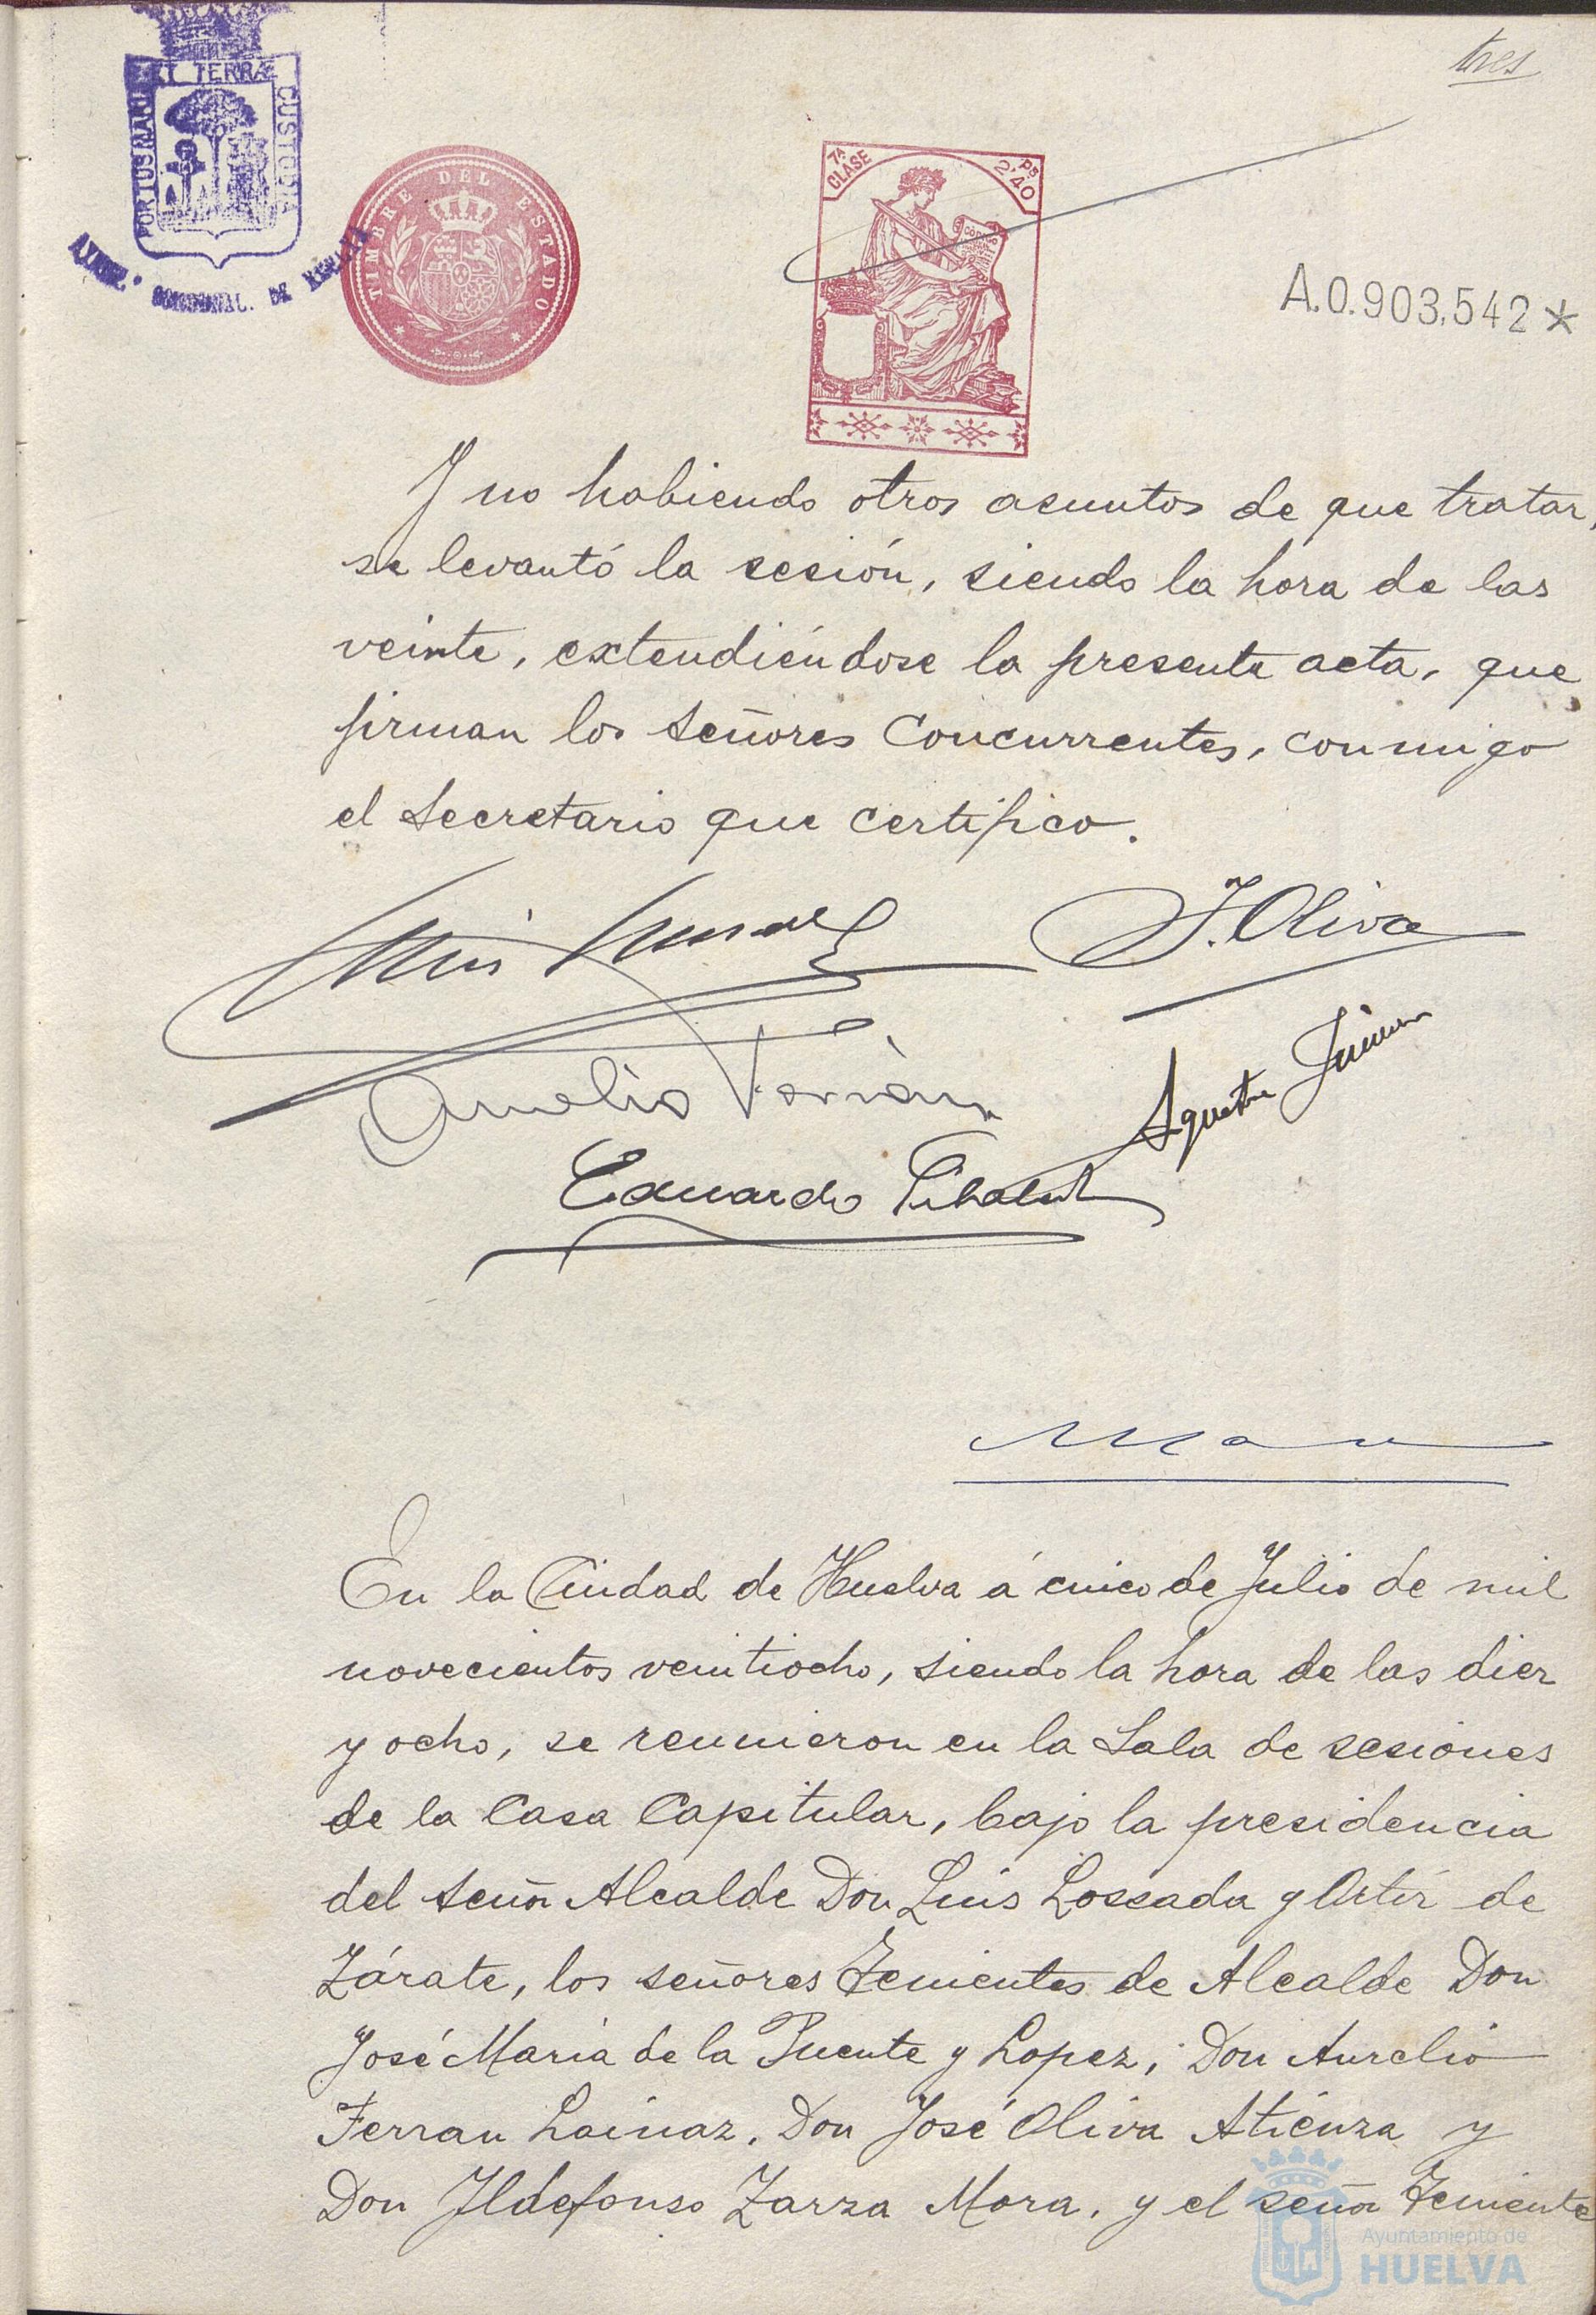 tres
PORTUS MARIS ET TERRÆ CUSTODIA
TIMBRE DEL ESTADO
7ª CLASE
Pˢ 2'40
A.0.903,542*
Y no habiendo otros asuntos de que tratar,
se levantó la sesión, siendo la hora de las
veinte, extendiéndose la presente acta, que
firman los Señores Concurrentes, conmigo
el Secretario que certifico.
J. Oliva
Aurelio
Agustin Jimenez
Eduardo
En la Ciudad de Huelva á cinco de Julio de mil
novecientos veintiocho, siendo la hora de las diez
y ocho, se reunieron en la Sala de sesiones
de la Casa Capitular, bajo la presidencia
del Señor Alcalde Don Luis Loscada y Ortiz de
Zárate, los señores Tenientes de Alcalde Don
José María de la Puente y Lopez, Don Aurelio
Ferran Lainaz, Don José Oliva Atienza y
Don Ildefonso Zarza Mora, y el señor Teniente
Ayuntamiento de
HUELVA